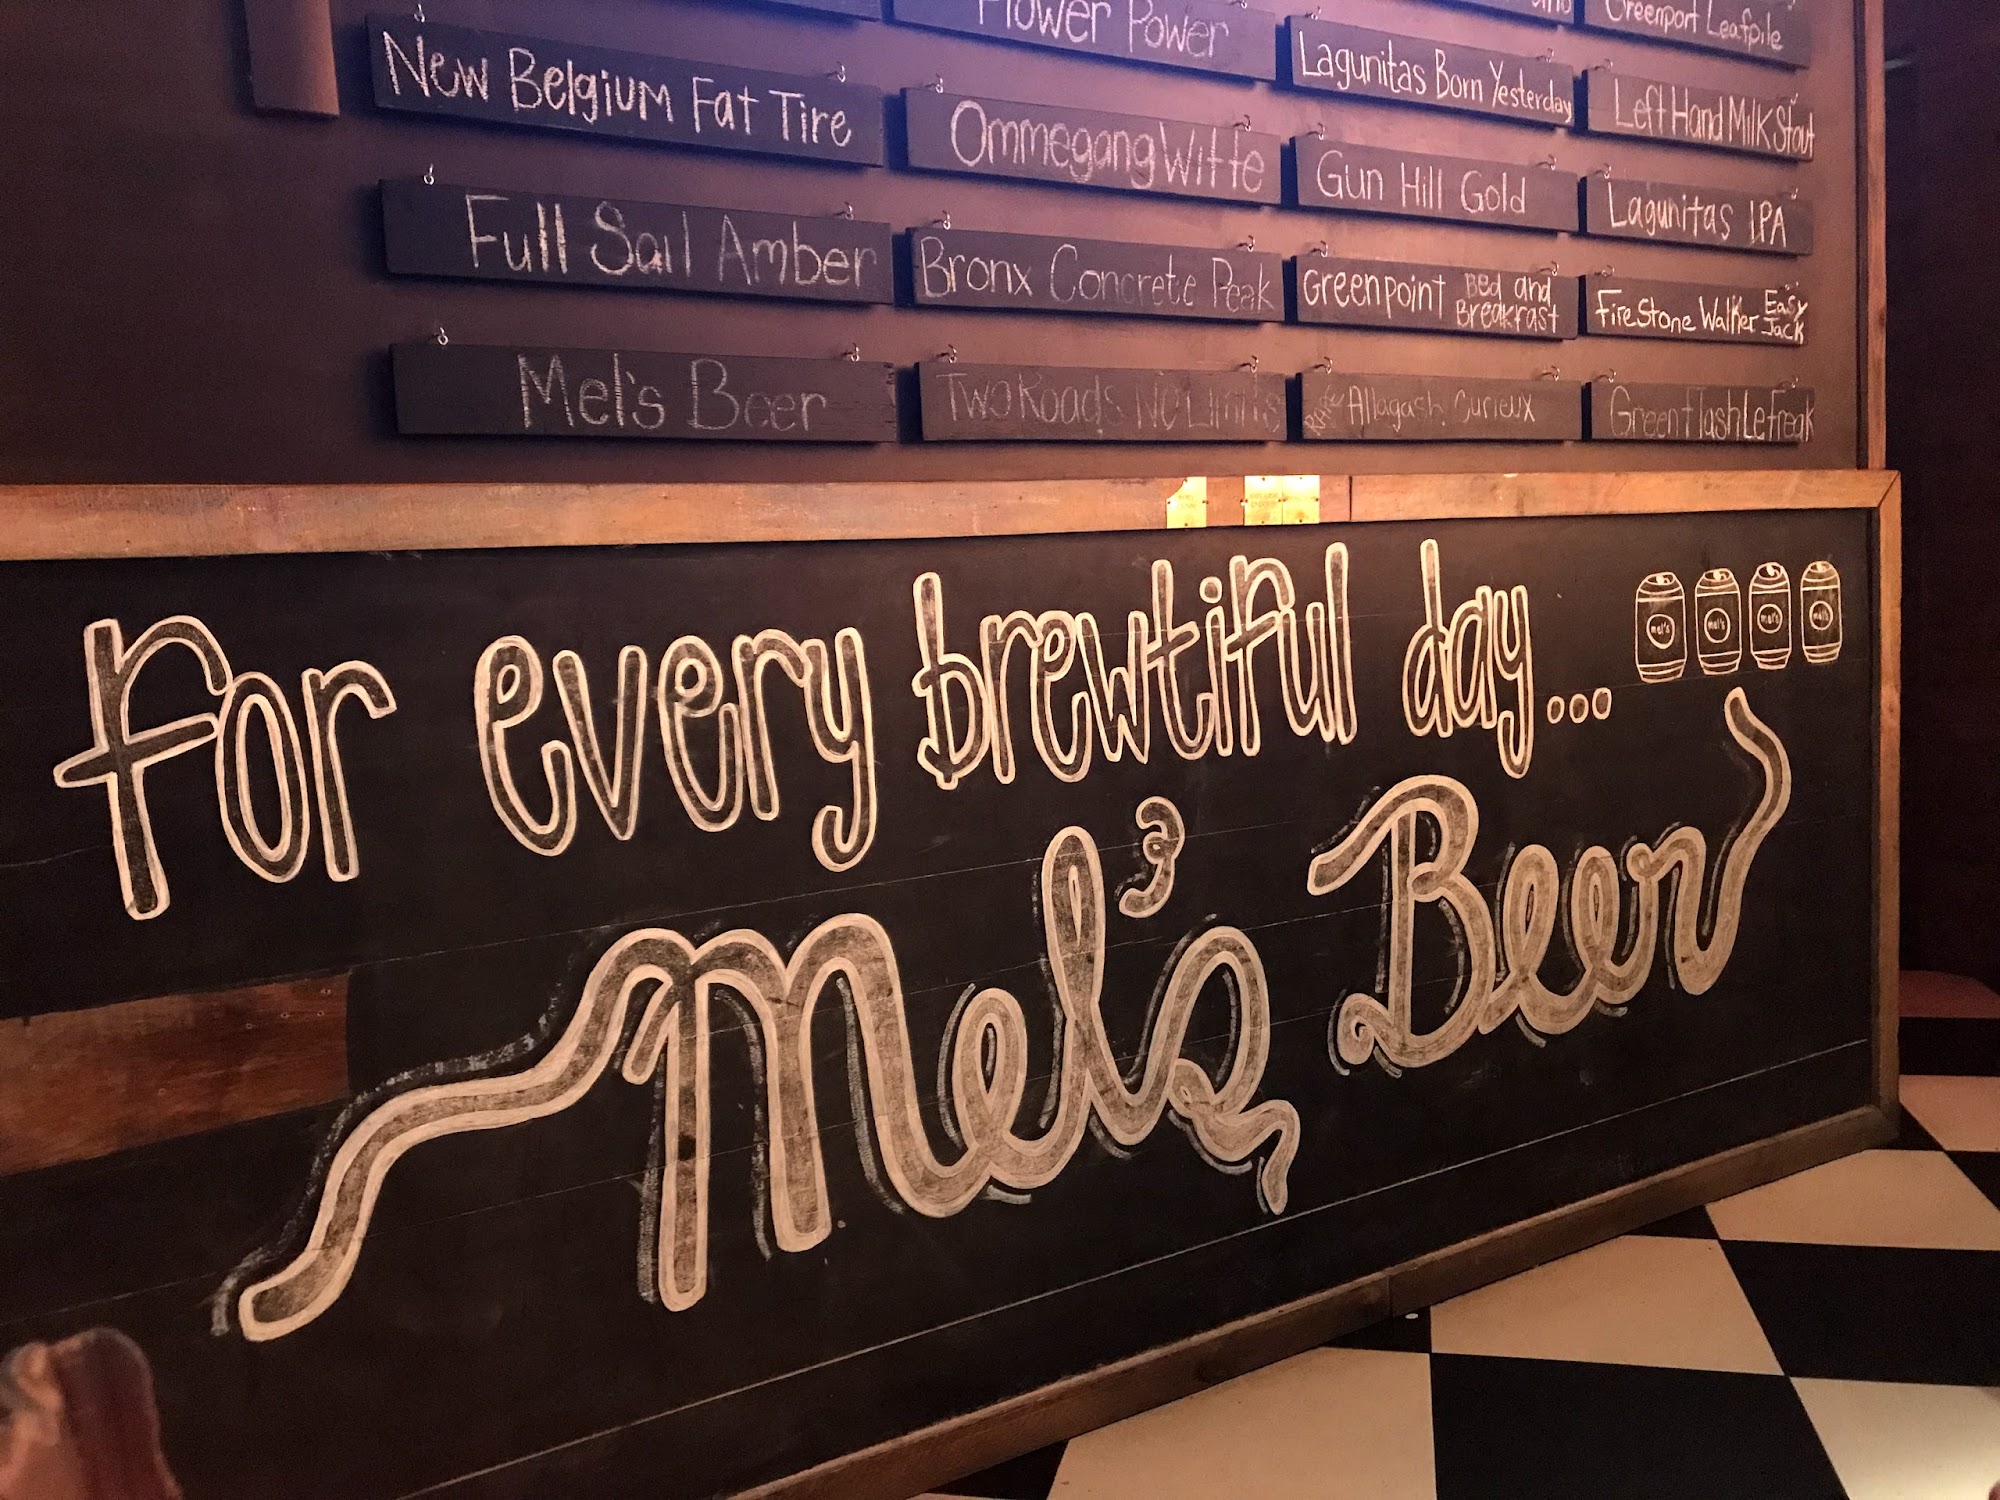 Flower Power
Greenport Leafpile
New Belgium Fat Tire
Ommegang Witte
Lagunitas Born Yesterday
Left Hand Milk Stout
Full Sail Amber
Bronx Concrete Peak
Gun Hill Gold
Lagunitas IPA
Mel's Beer
Two Roads No Limits
Greenpoint Bed and
Breakfast
FireStone Walker Easy
Jack
Allagash Curieux
Green flash Le freak
For every brewtiful day...
mel's mel's mel's mel's
Mel's Beer